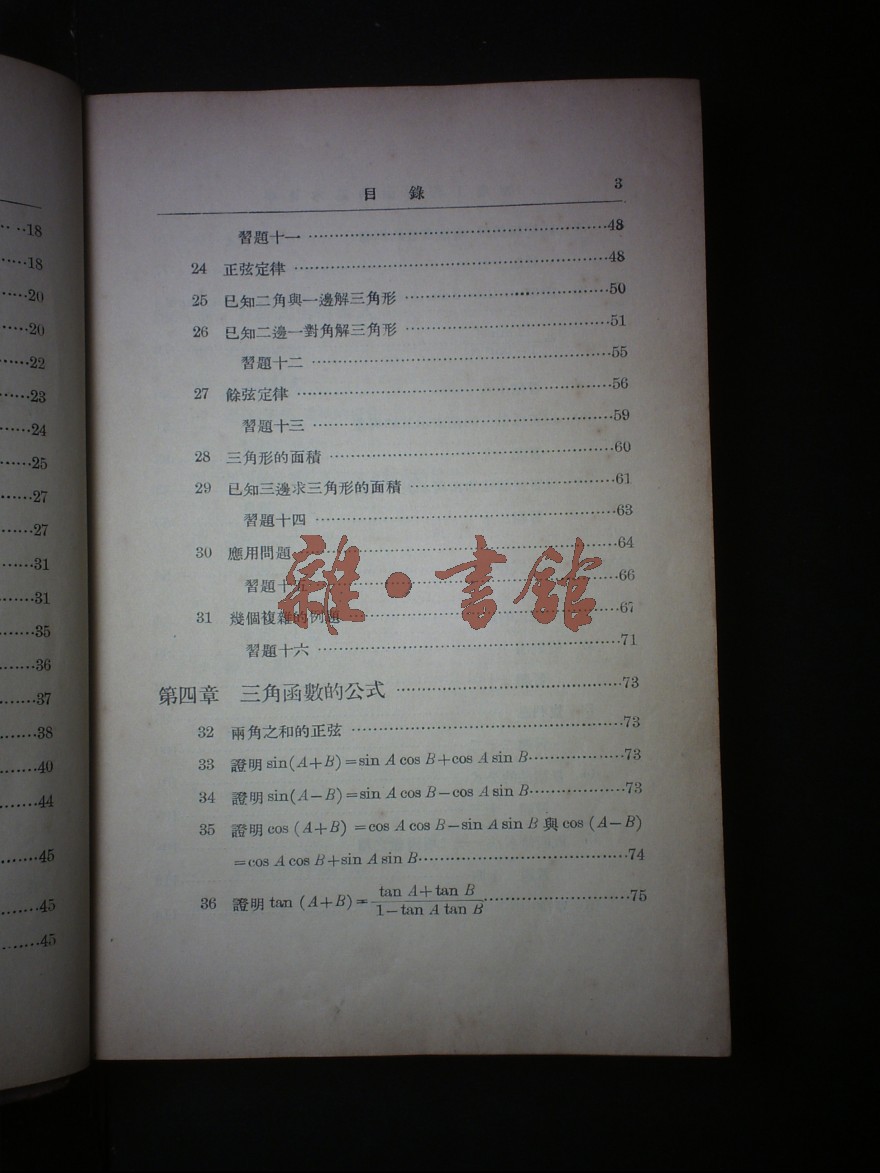 目 錄 3
習題十一 ········48
24 正弦定律 ········48
25 已知二角與一邊解三角形 ········50
26 已知二邊一對角解三角形 ········51
習題十二 ········55
27 餘弦定律 ········56
習題十三 ········59
28 三角形的面積 ········60
29 已知三邊求三角形的面積 ········61
習題十四 ········63
30 應用問題 ········64
習題十五 ········66
31 幾個複雜的例題 ········67
習題十六 ········71
第四章 三角函數的公式 ········73
32 兩角之和的正弦 ········73
33 證明 sin(A+B)=sin A cos B+cos A sin B ········73
34 證明 sin(A−B)=sin A cos B−cos A sin B ········73
35 證明 cos (A+B) =cos A cos B−sin A sin B 與 cos (A−B)
=cos A cos B+sin A sin B ········74
36 證明 tan (A+B)= (tan A+tan B)/(1−tan A tan B) ········75
雜·書館
··18
··18
··20
··20
··22
··23
··24
··25
··27
··27
··31
··31
··35
··36
··37
··38
··40
··44
··45
··45
··45